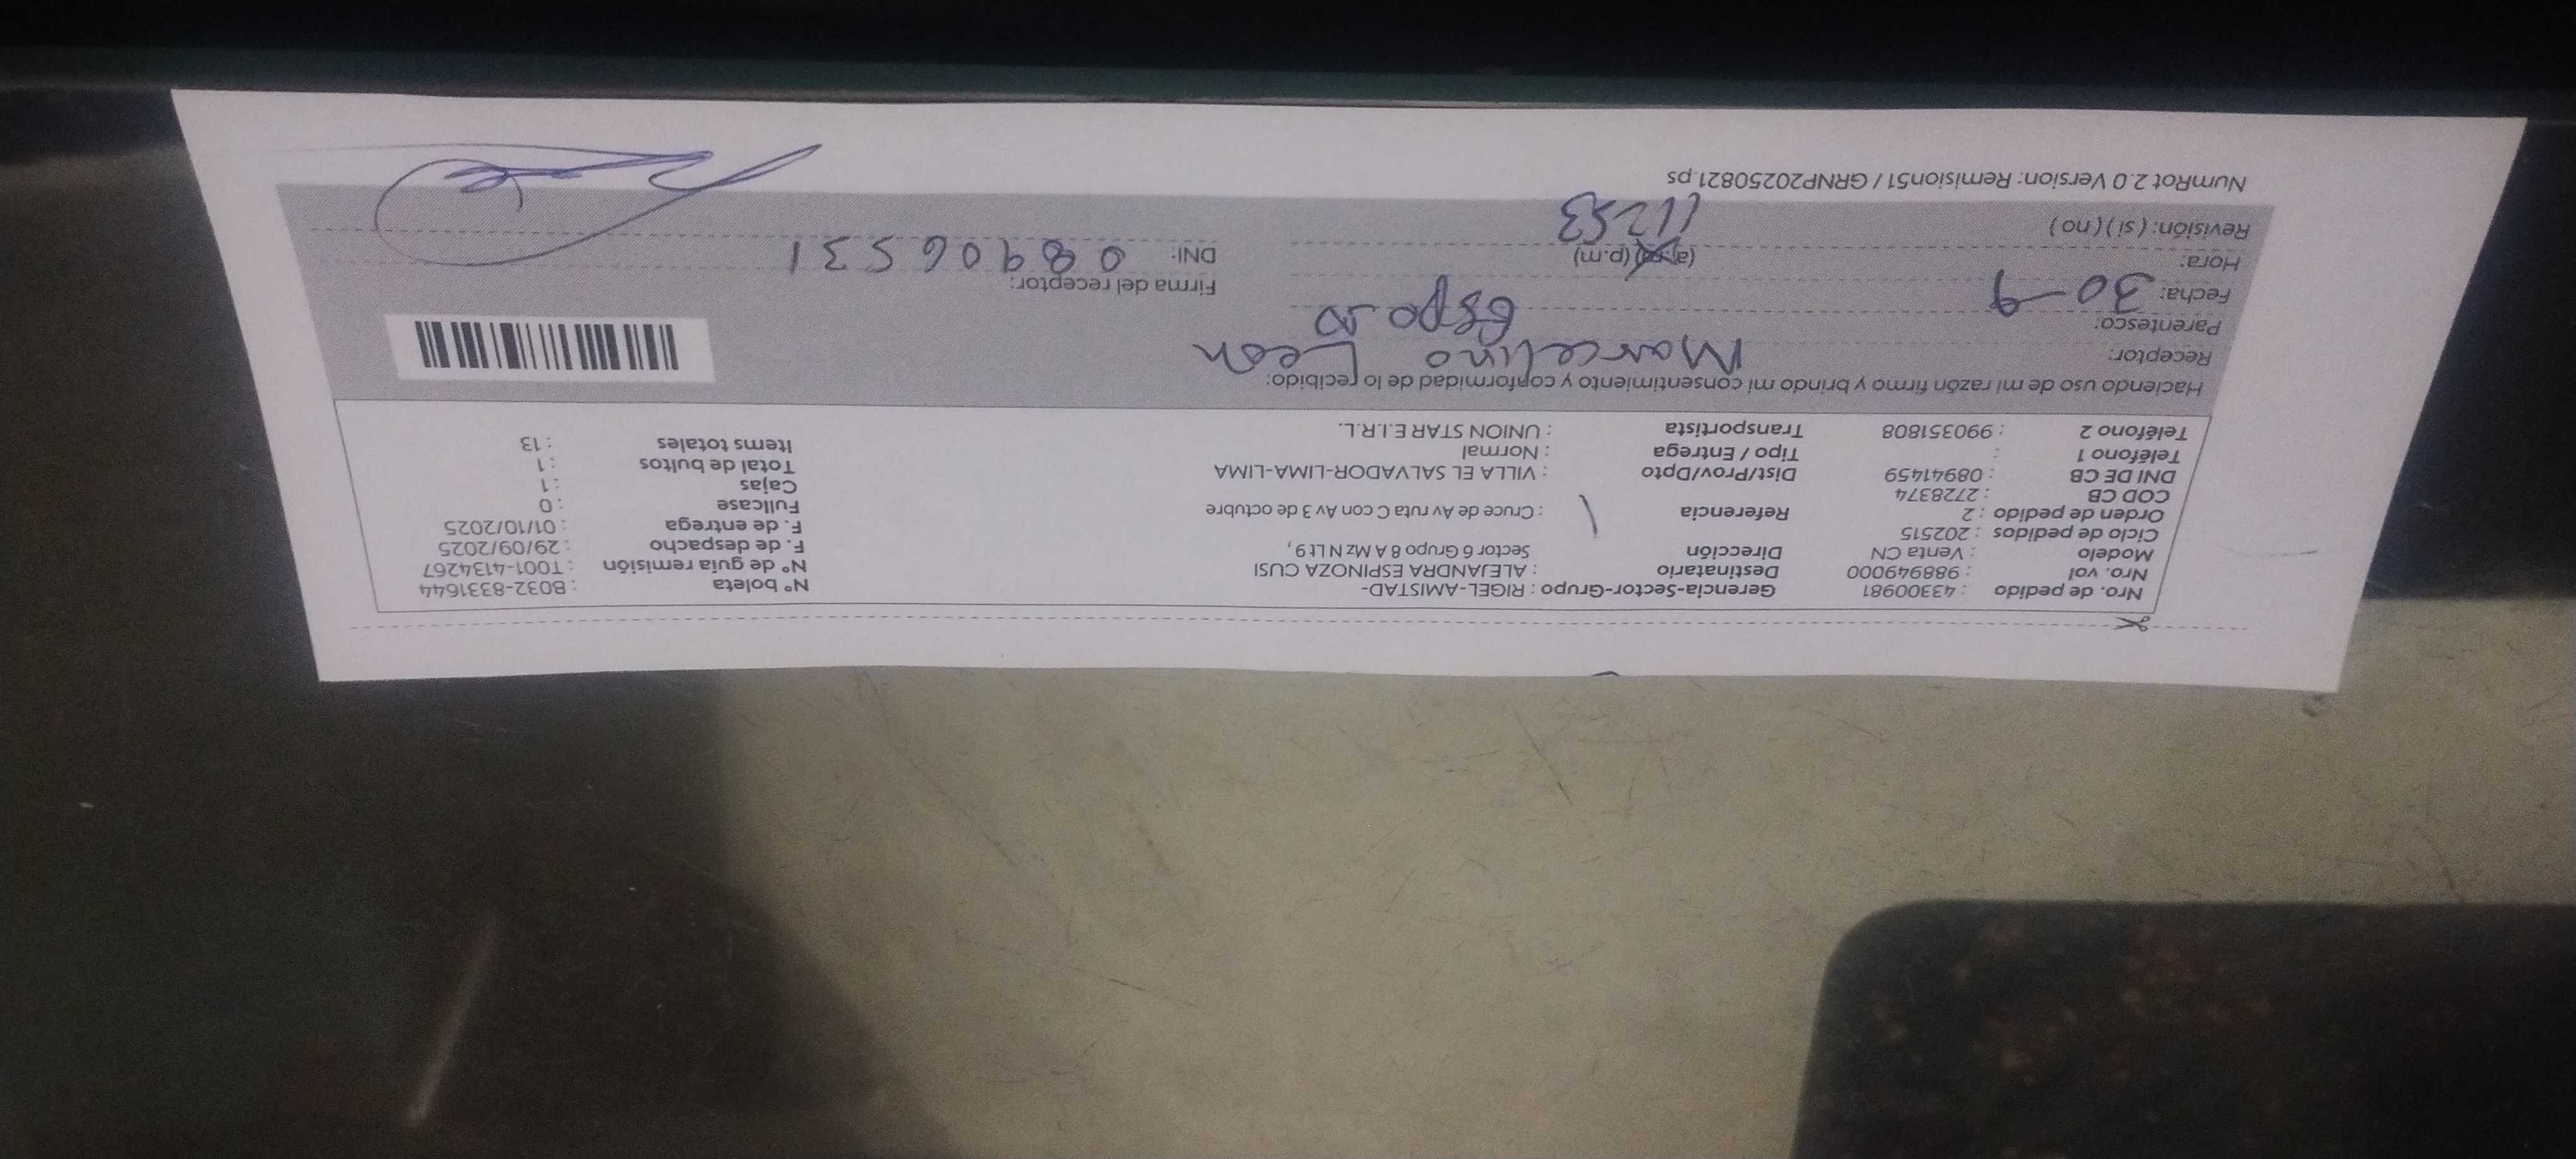 Nro. de pedido : 43300981 Gerencia-Sector-Grupo : RIGEL-AMISTAD- N° boleta : B032-8331644
Nro. vol : 988949000 Destinatario : ALEJANDRA ESPINOZA CUSI N° de guía remisión : T001-4134267
Modelo : Venta CN Dirección Sector 6 Grupo 8 A Mz N Lt 9 , F. de despacho : 29/09/2025
Ciclo de pedidos : 202515 F. de entrega : 01/10/2025
Orden de pedido : 2 Referencia : Cruce de Av ruta C con Av 3 de octubre Fullcase : 0
COD CB : 2728374 Cajas : 1
DNI DE CB : 08941459 Dist/Prov/Dpto : VILLA EL SALVADOR-LIMA-LIMA Total de bultos : 1
Teléfono 1 : Tipo / Entrega : Normal Items totales : 13
Teléfono 2 : 990351808 Transportista : UNION STAR E.I.R.L.
Haciendo uso de mi razón firmo y brindo mi consentimiento y conformidad de lo recibido:
Receptor: Marcelino Leon
Parentesco: Esposo
Fecha: 30-9 Firma del receptor:
Hora: (a.m) (p.m) DNI: 08906531
Revisión: ( si ) ( no ) 11253
NumRot 2.0 Version: Remision51 / GRNP20250821.ps